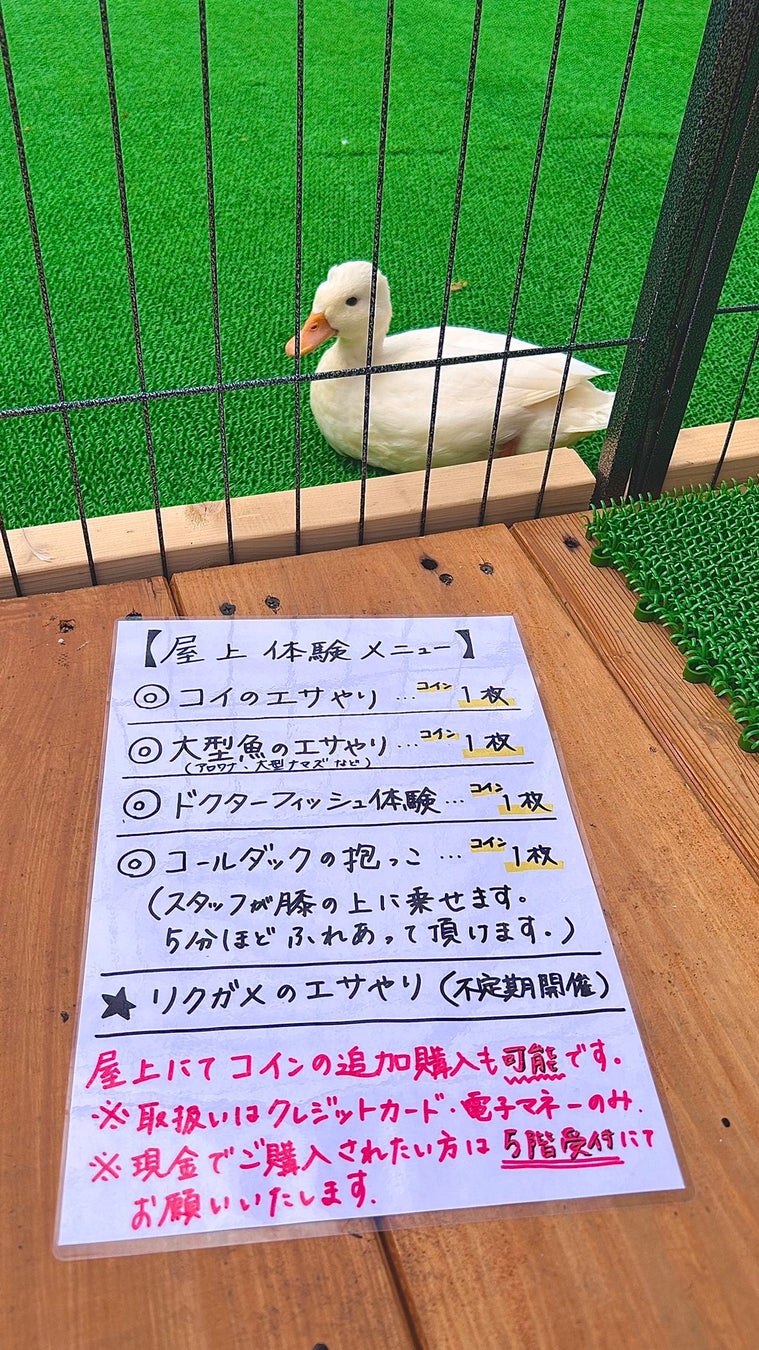 【屋上体験メニュー】
◎コイのエサやり…コイン1枚
◎大型魚のエサやり…コイン1枚
(アロワナ・大型ナマズなど)
◎ドクターフィッシュ体験…コイン1枚
◎コールダックの抱っこ…コイン1枚
(スタッフが膝の上に乗せます。
5分ほどふれあって頂けます。)
★リクガメのエサやり(不定期開催)
屋上にてコインの追加購入も可能です。
※取扱いはクレジットカード・電子マネーのみ.
※現金でご購入されたい方は5階受付にて
お願いいたします.